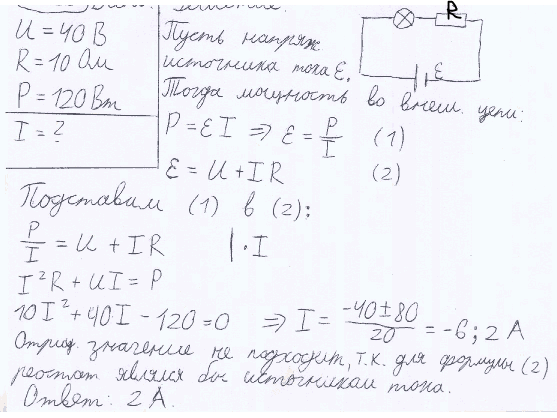 решение.
U = 40 В
R = 10 Ом
P = 120 Вт
I = ?
Пусть напряж.
источника тока Ɛ.
Тогда мощность во внеш. цепи:
R
Ɛ
P = ƐI ⇒ Ɛ = P/I (1)
Ɛ = U + IR (2)
Подставим (1) в (2):
P/I = U + IR | · I
I²R + UI = P
10I² + 40I - 120 = 0 ⇒ I = (-40±80)/20 = -6; 2 А
Отриц. значение не подходит, т.к. для формулы (2)
реостат являлся бы источником тока.
Ответ: 2 А.